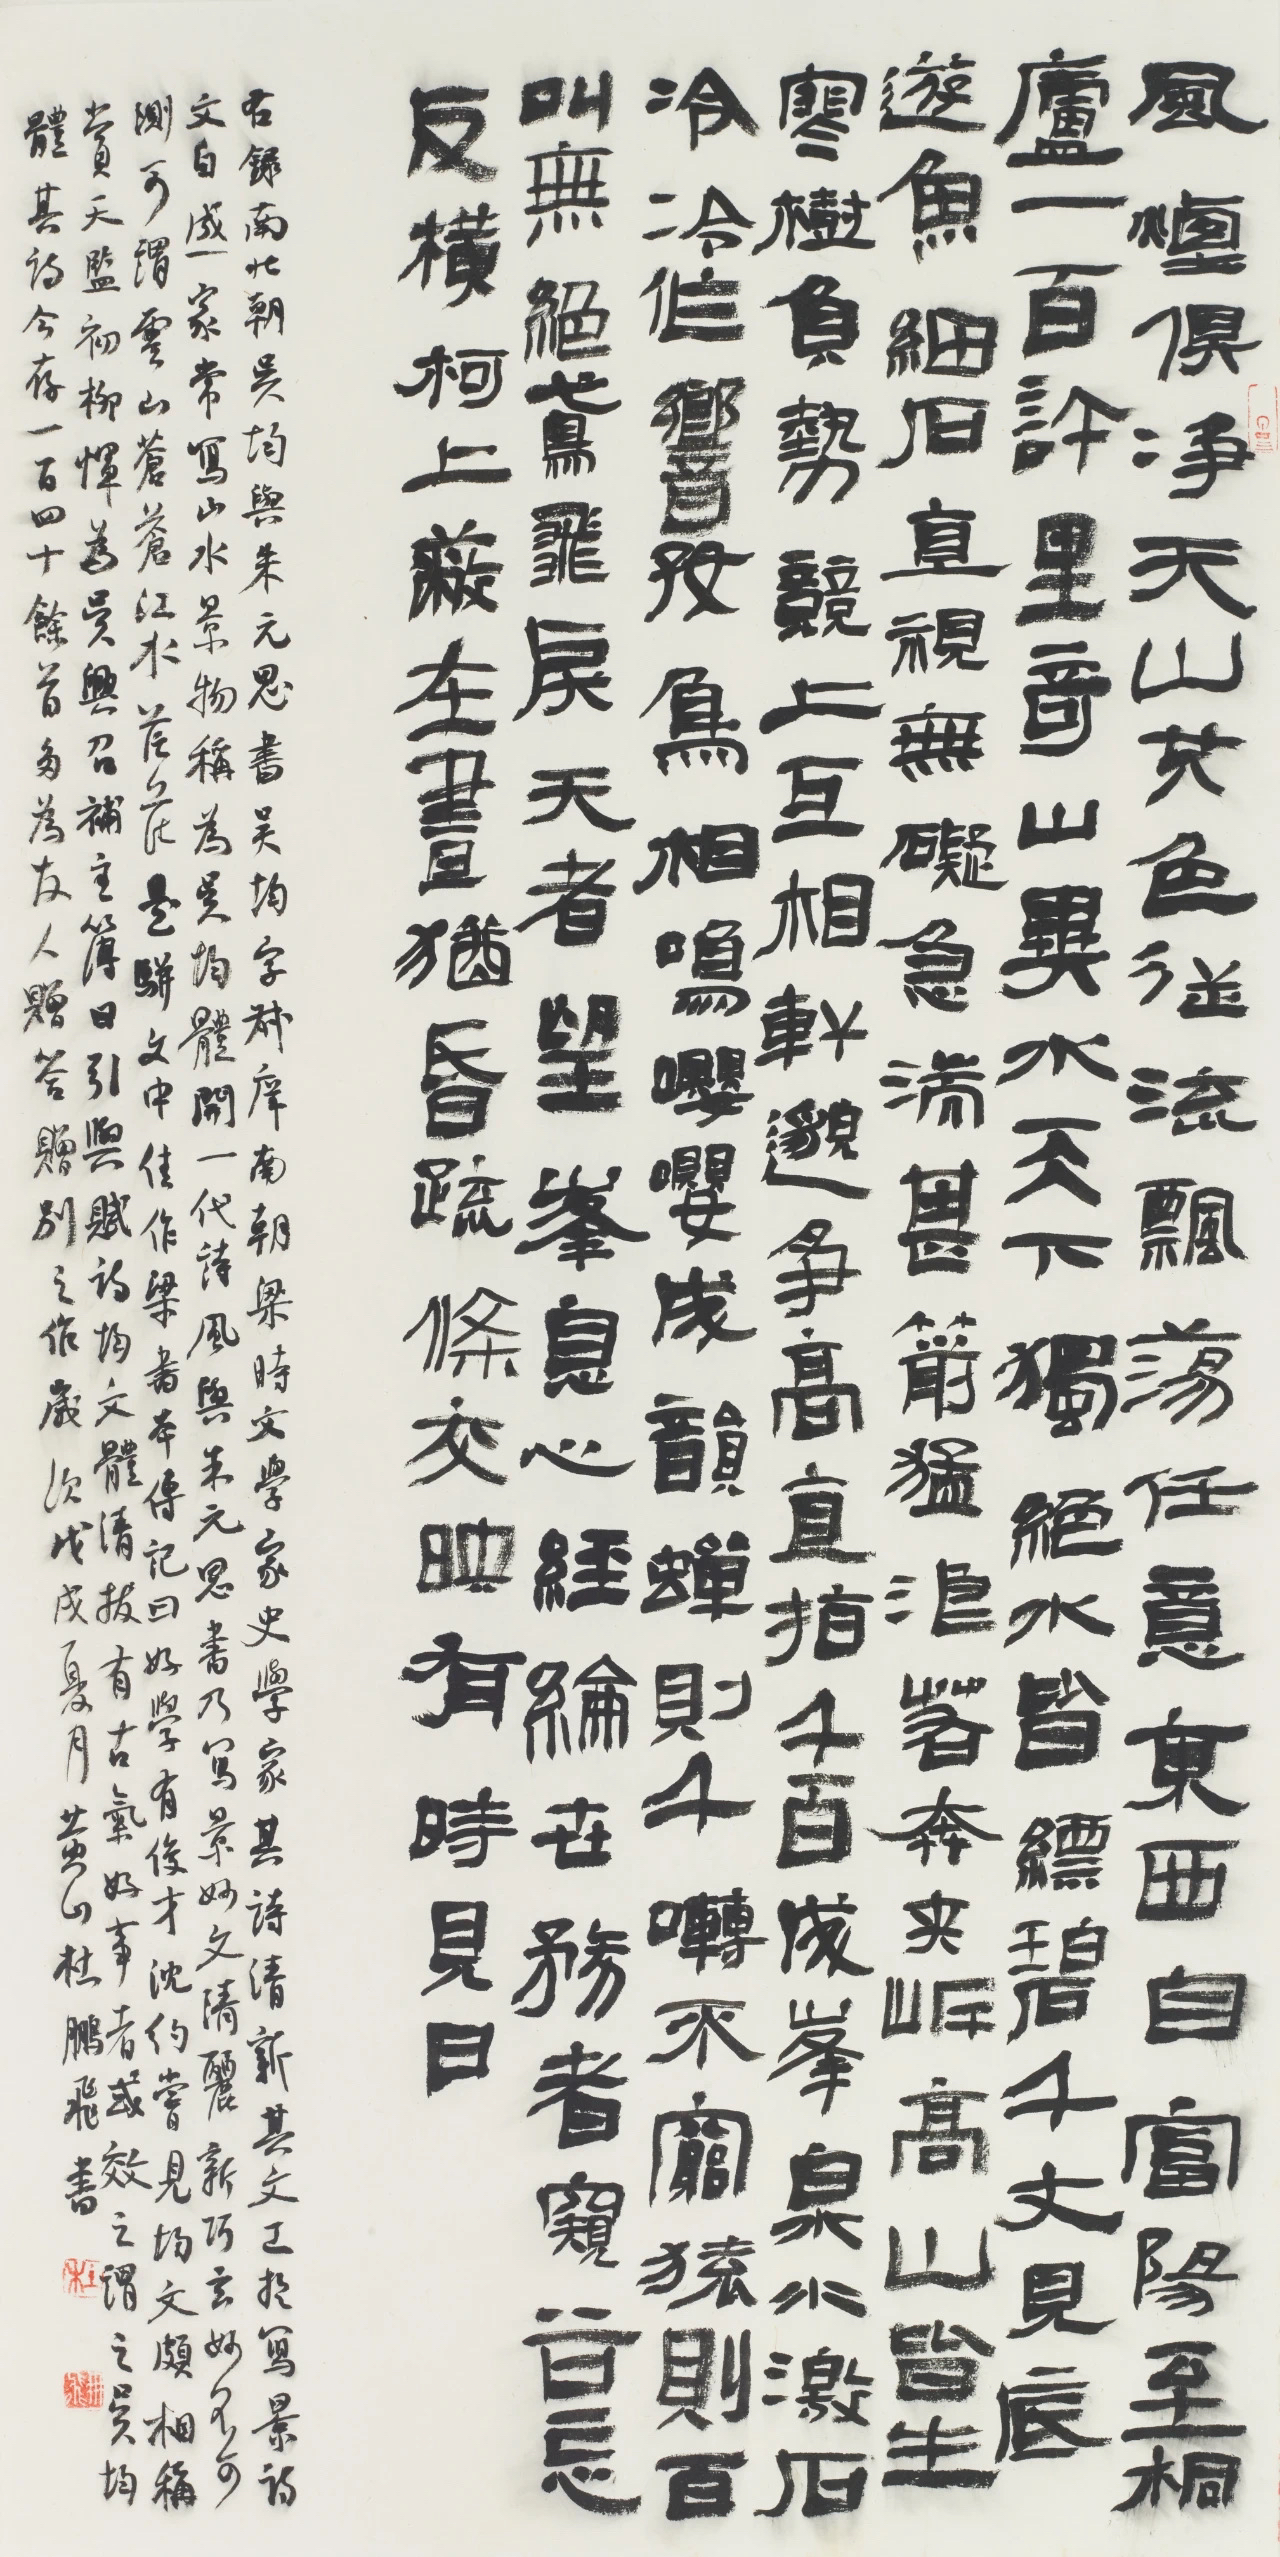 風煙俱净天山共色從流飄蕩任意東西自富陽至桐
廬一百許里奇山異水天下獨絕水皆縹碧千丈見底
遊魚細石直視無礙急湍甚箭猛浪若奔夾岸高山皆生
寒樹負勢競上互相軒邈争高直指千百成峯泉水激石
泠泠作響好鳥相鳴嚶嚶成韻蟬則千囀不窮猿則百
叫無絕鳶飛戾天者望峯息心經綸世務者窺谷忘
反橫柯上蔽在晝猶昏疏條交映有時見日
右錄南北朝吳均與朱元思書吳均字叔庠南朝梁時文學家史學家其詩清新其文工於寫景詩
文自成一家常寫山水景物稱為吳均體開一代詩風與朱元思書乃寫景妙文清麗新巧玄妙不可
測可謂雲山蒼蒼江水茫茫是駢文中佳作梁書本傳記曰好學有俊才沈約嘗見均文頗相稱
賞天監初柳惲為吳興召補主簿日引與賦詩均文體清拔有古氣好事者或效之謂之吳均
體其詩今存一百四十餘首多為友人贈答贈別之作歲次戊戌夏月黃山杜鵬飛書
杜